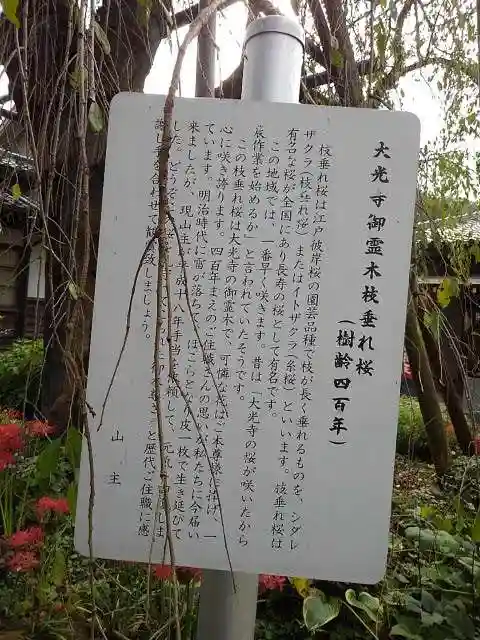 大光寺御霊木枝垂れ桜
（樹齢四百年）
枝垂れ桜は江戸彼岸桜の園芸品種で枝が長く垂れるものを、シダレ
ザクラ（枝垂れ桜）またはイトザクラ（糸桜）といいます。枝垂れ桜は
有名な桜が全国にあり長寿の桜として有名です。
この地域では、一番早く咲きます。昔は「大光寺の桜が咲いたから
農作業を始めるか」と言われていたそうです。
この枝垂れ桜は大光寺の御霊木で、可憐な花はご本尊様に捧げ、一
心に咲き誇ります。四百年まえのご住職さんの思いが私たちに今届い
ています。明治時代に雷が落ち、ほこらとなり皮一枚で生き延びて
来ましたが、現山主が平成十八年手当を依頼して、元気に
した。どうぞ と歴代ご住職に感
謝し手を合わせて 致しましょう。
山主